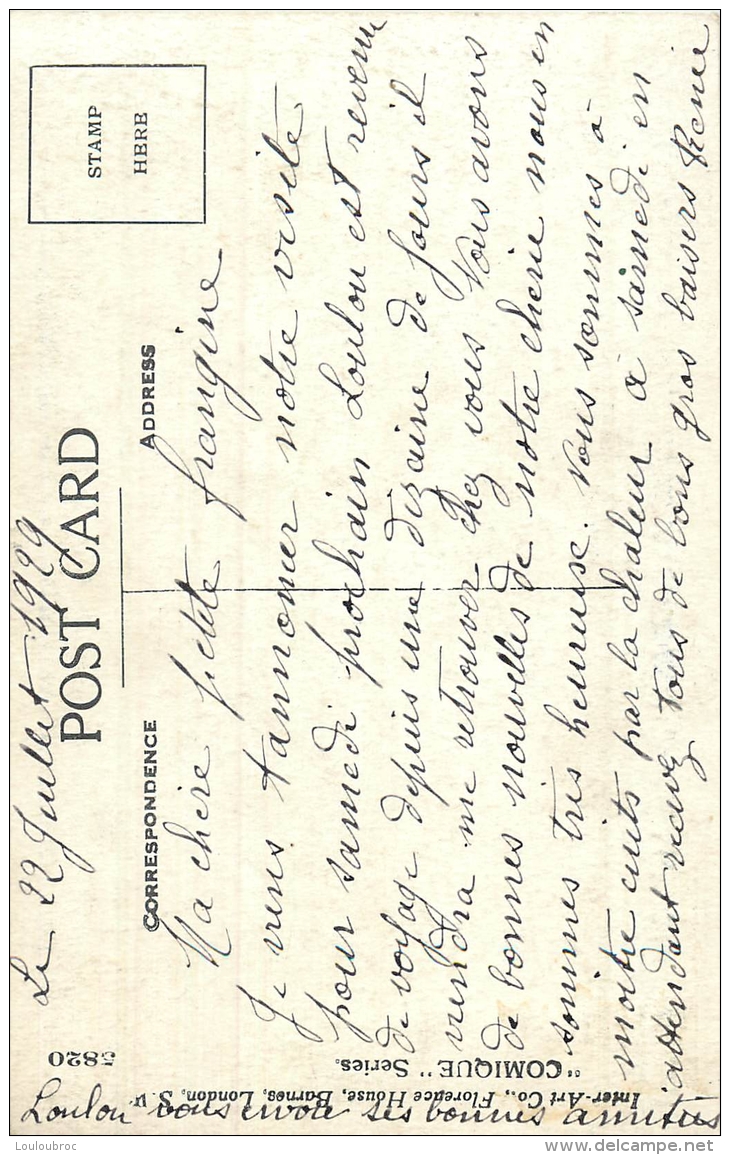 Le 22 Juillet 1929
POST CARD
CORRESPONDENCE
ADDRESS
STAMP
HERE
Ma chère petite frangine
Je viens t'annoncer notre visite
pour samedi prochain Loulou est revenu
de voyage depuis une dizaine de jours il
viendra me retrouver chez vous Nous avons
de bonnes nouvelles de notre cherie nous en
sommes très heureuse. Nous sommes à
moitié cuits par la chaleur à samedi en
attendant recevez tous de bons gros baisers Renée
Loulou vous envoie ses bonnes amitiés
5820
"COMIQUE" Series.
Inter-Art Co., Florence House, Barnes, London, S.W.
Louloubroc
delcampe.net